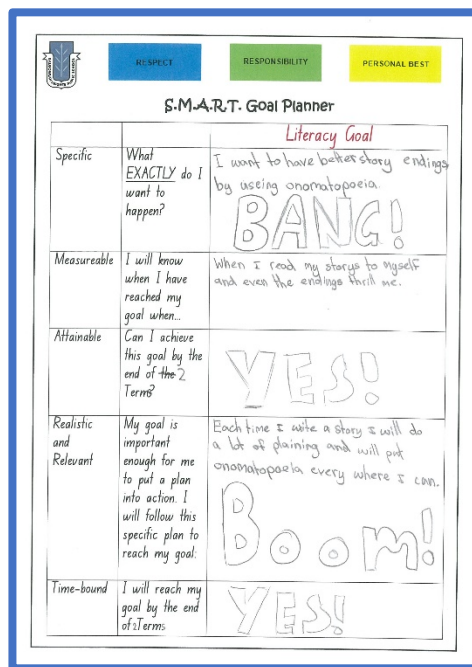 RESPECT
RESPONSIBILITY
PERSONAL BEST
S.M.A.R.T. Goal Planner
Literacy Goal
Specific
What
EXACTLY do I
want to
happen?
I want to have better story endings
by useing onomatopoeia.
BANG!
Measureable
I will know
when I have
reached my
goal when...
When I read my storys to myself
and even the endings thrill me.
Attainable
Can I achieve
this goal by the
end of the 2
Terms?
YES!
Realistic
and
Relevant
My goal is
important
enough for me
to put a plan
into action. I
will follow this
specific plan to
reach my goal:
Each time I write a story I will do
a lot of plaining and will put
onomatopoeia every where I can.
Boom!
Time-bound
I will reach my
goal by the end
of 2 Terms
YES!